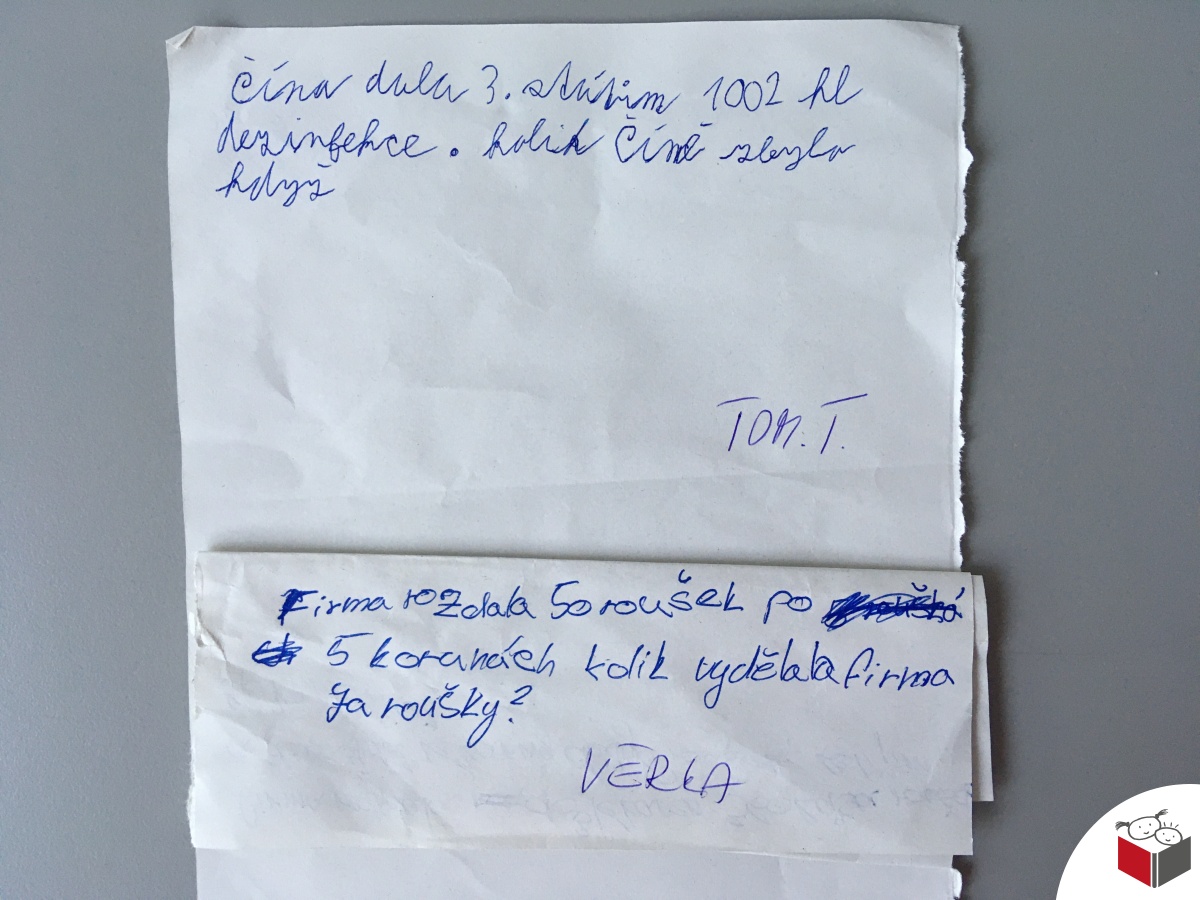 Čína dala 3. státům 1002 hl
dezinfekce. kolik Číně zbylo
když
TOM. T.
Firma rozdala 50 roušek po
5 korunách kolik vydělala firma
za roušky?
VĚRKA